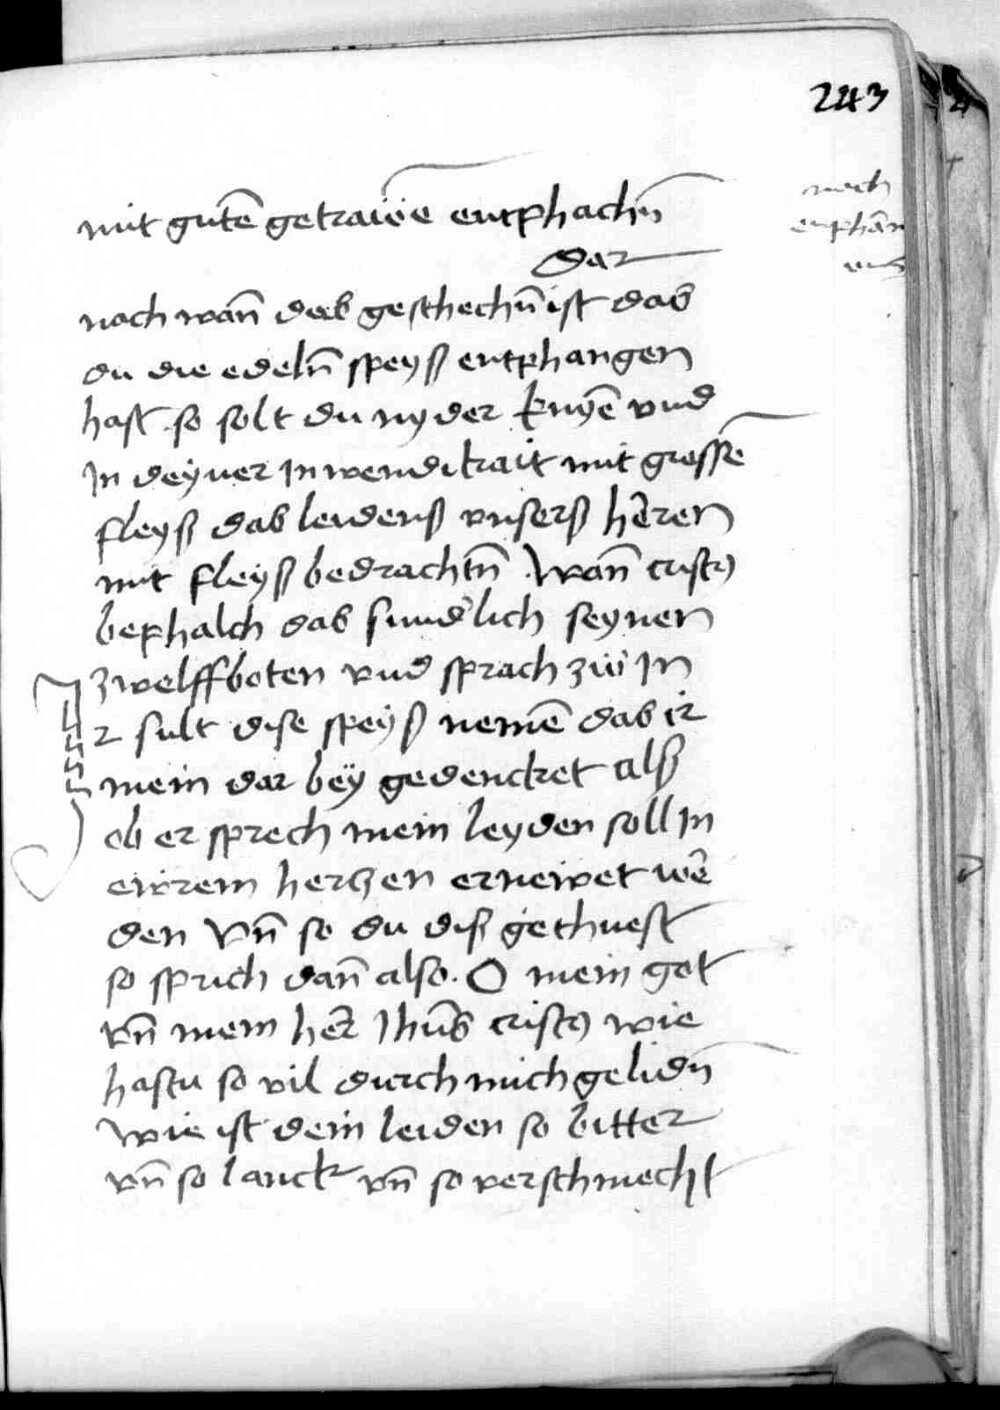 243
mit gutē getrawē entphachn̄
Dar
noch wan̄ das geschechn̄ ist das
du die edeln̄ speyß entphangen
hast so solt du nyder knyē vnd
In deyner Inwendikait mit grossē
fleyß das leidenß vnserß herren
mit fleyß bedrachtn̄ . Wan̄ cristꝰ
bephalch das sunderlich seynen
zwelffboten vnd sprach zu In
Ir sult dise speyß nemē das ir
mein dar bey gedencket alß
ob er sprech mein leyden soll In
ewrem herczen ernewet wer
den Vn̄ so du diß gethuest
so sprich dan̄ also . O mein got
vn̄ mein her Ihūs cristꝰ wie
hastu so vil durch mich gelidn̄
wie ist dein leiden so bitter
vn̄ so lanck vn̄ so verschmecht